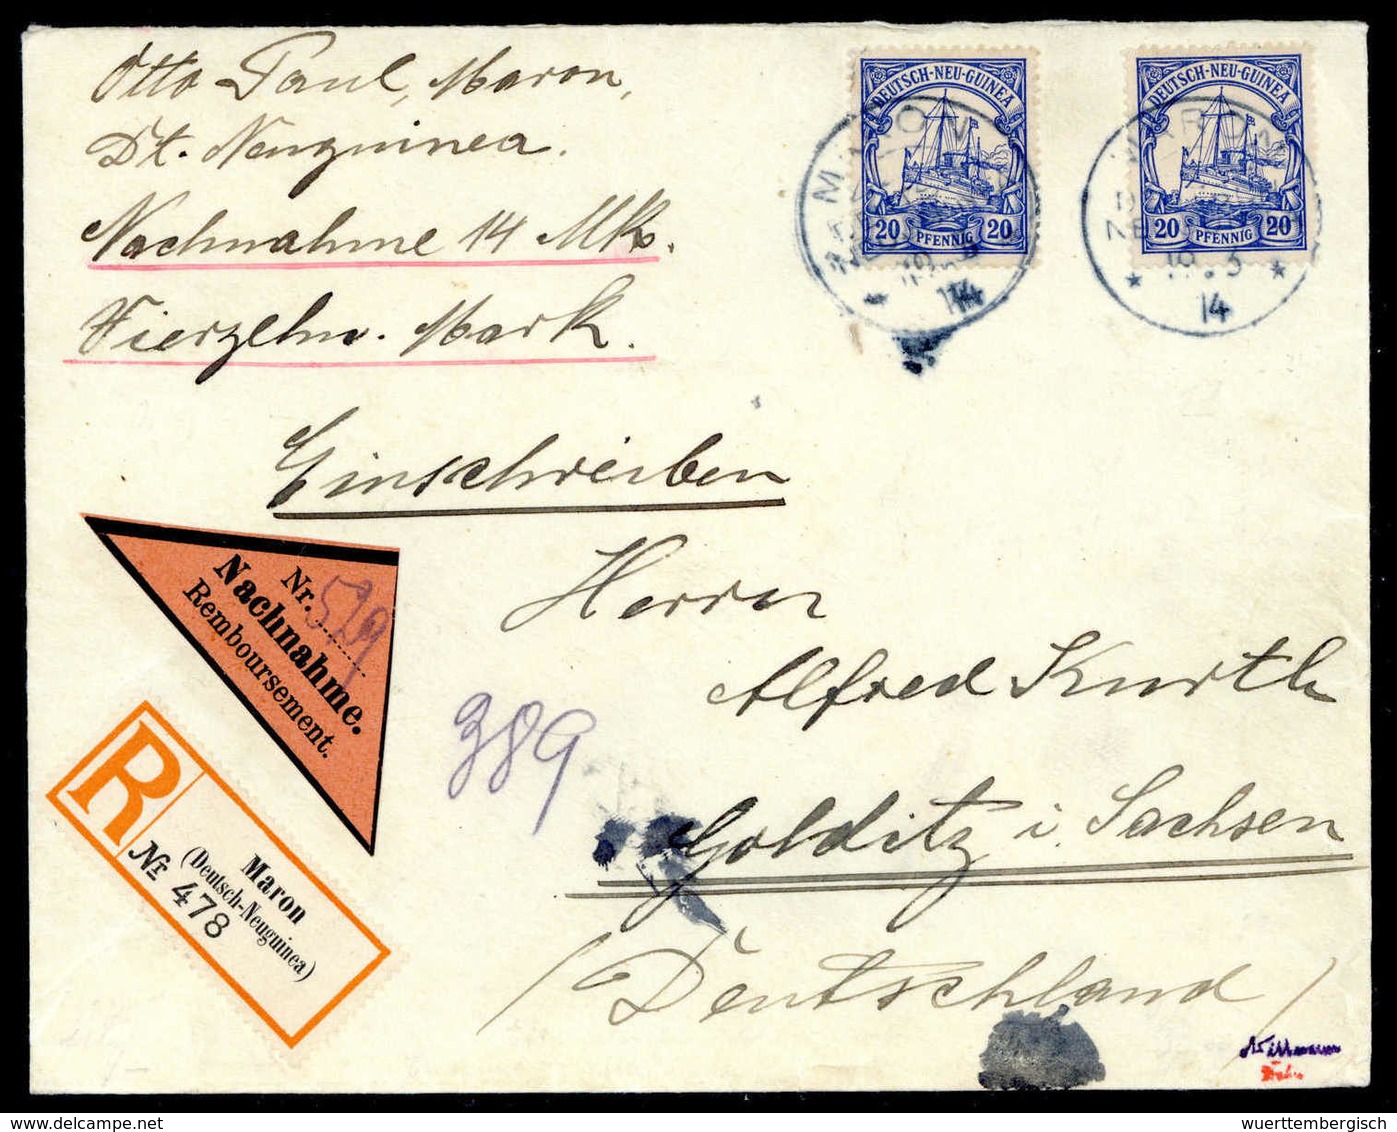 Otto Paul, Maron,
Dt. Neuguinea.
Nachnahme 14 Mk.
Vierzehn. Mark.
DEUTSCH-NEU-GUINEA
20 PFENNIG 20
DEUTSCH-NEU-GUINEA
20 PFENNIG 20
MARON
19.3
14
MARON
19.3
14
Einschreiben
Nr. 529
Nachnahme.
Remboursement.
Herrn
Alfred Kurth
389
Golditz i. Sachsen
(Deutschland)
R
Maron
(Deutsch-Neuguinea)
№ 478
wuerttembergisch